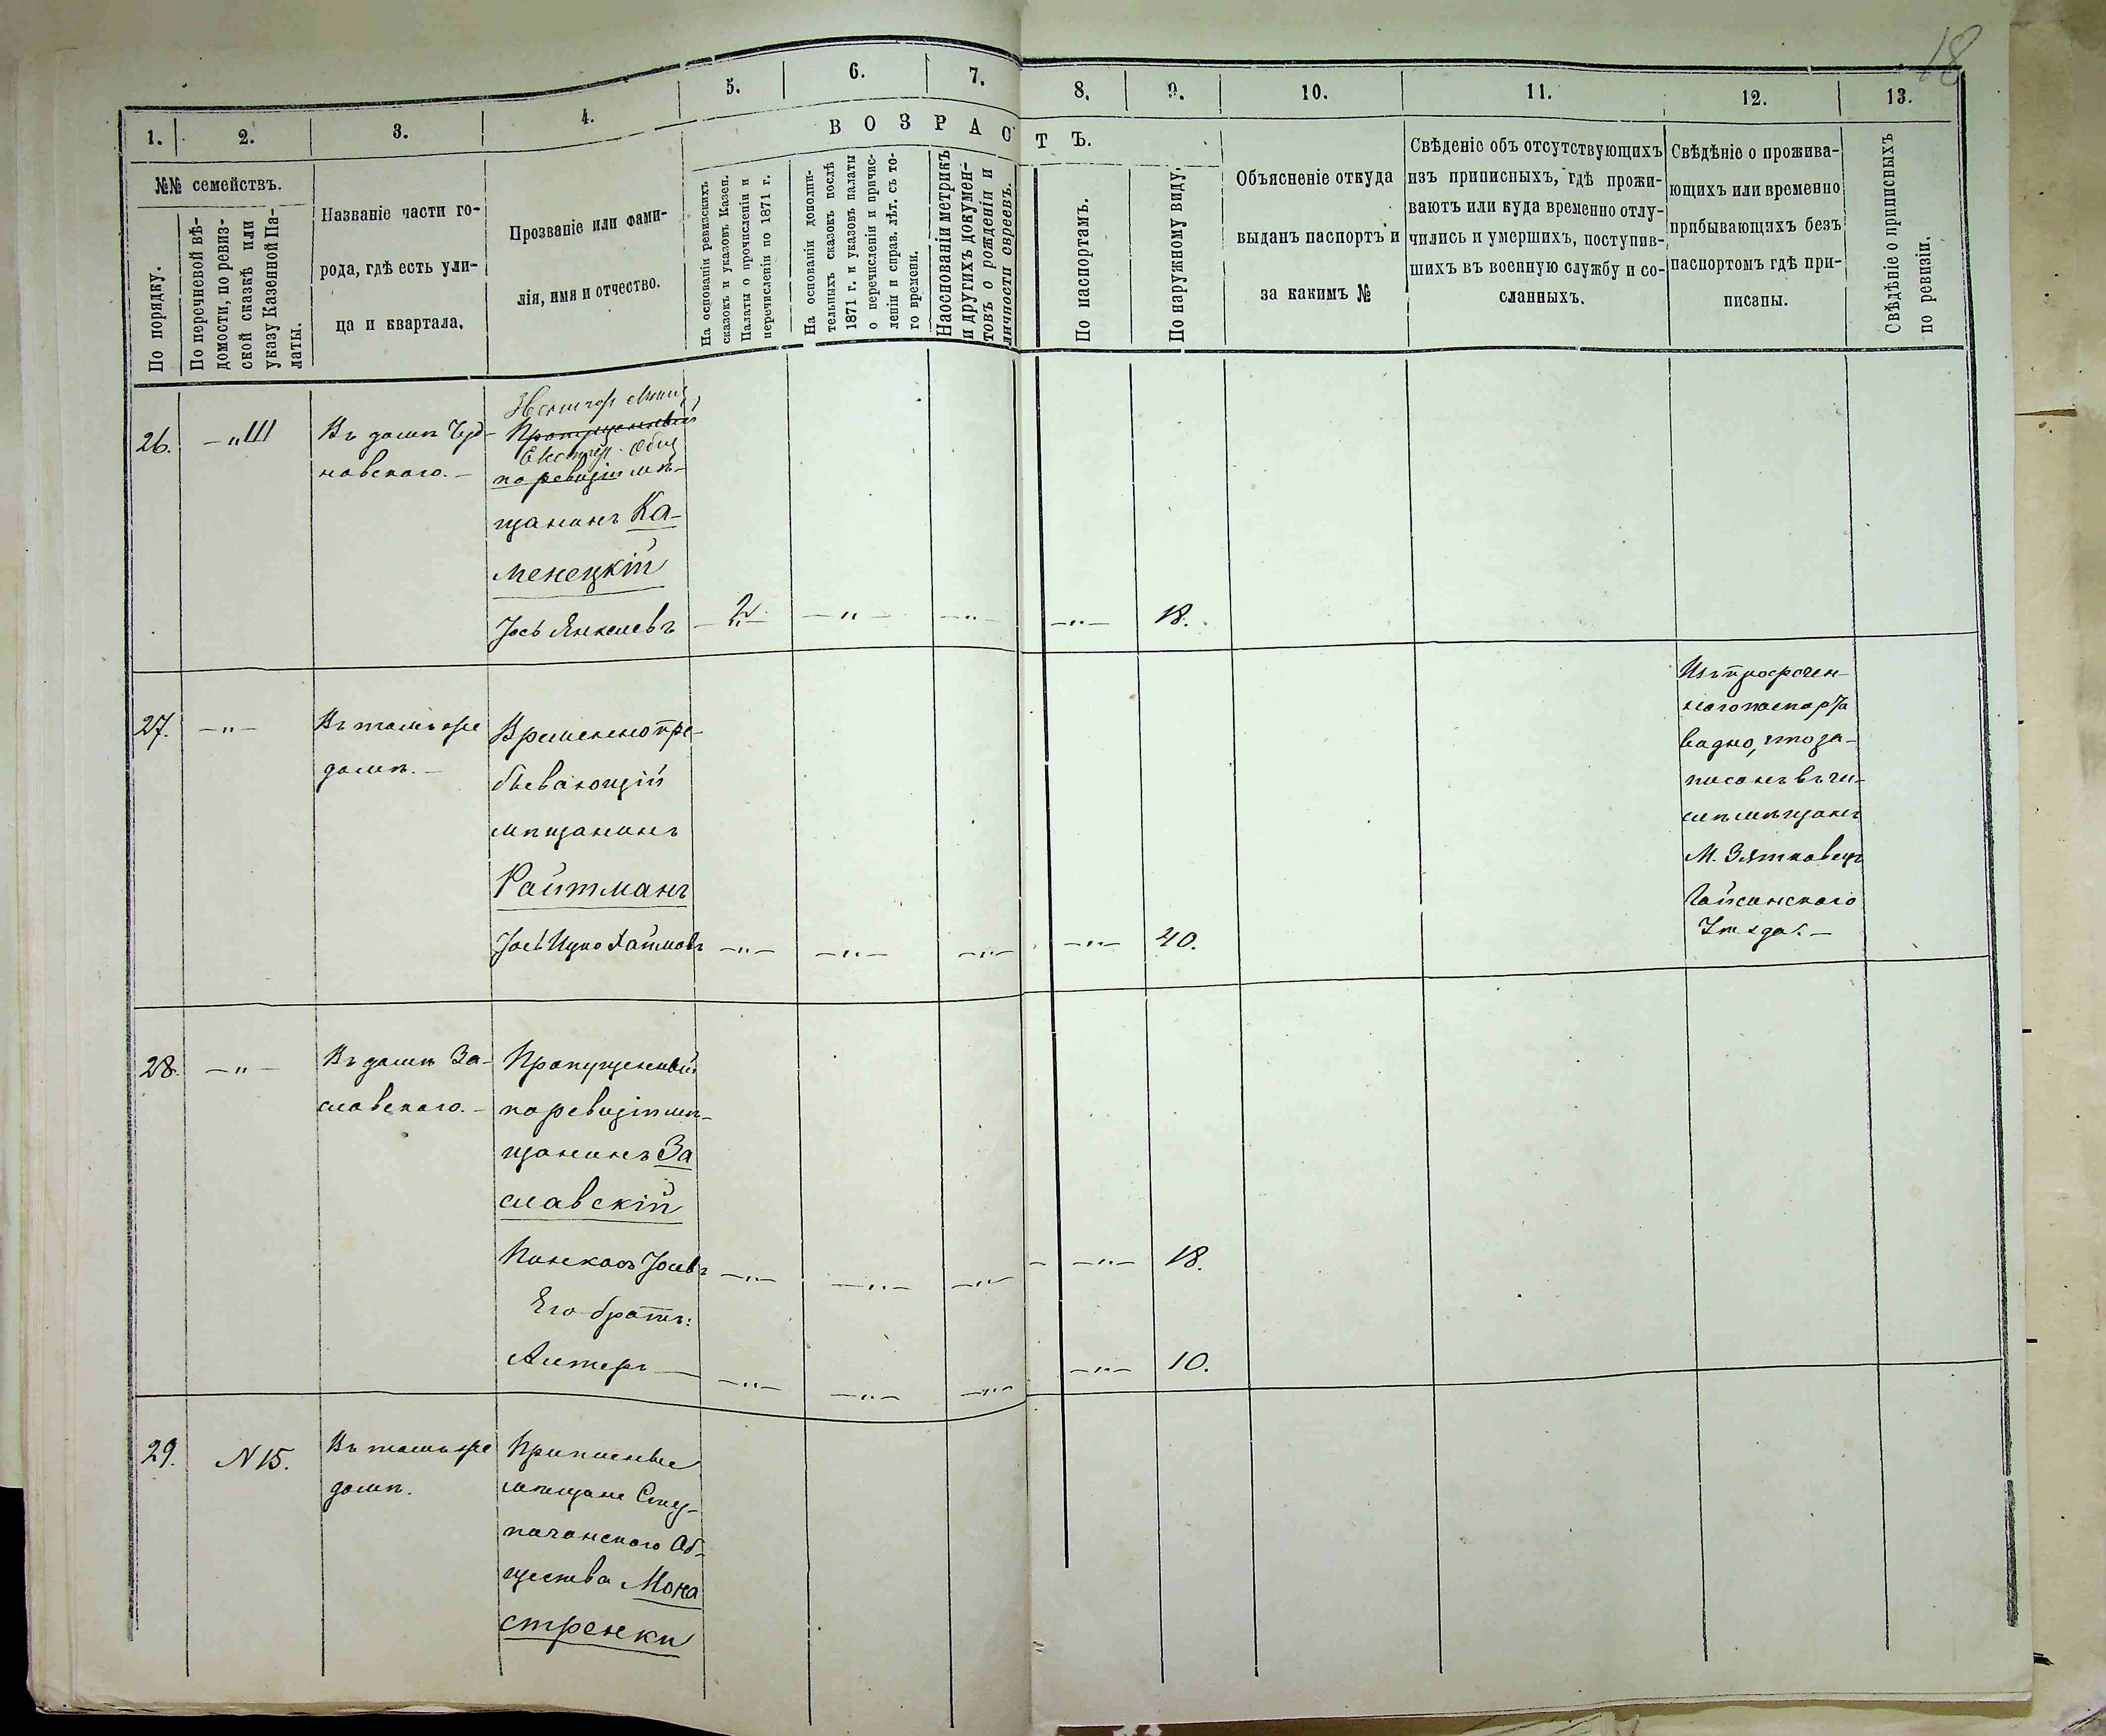 18
1.
2.
3.
4.
5.
6.
7.
8.
9.
10.
11.
12.
13.
ВОЗРАСТЪ.
№№ семействъ.
По порядку.
По перечневой вѣ-
домости, по ревиз-
ской сказкѣ или
указу Казенной Па-
латы.
Названіе части го-
рода, гдѣ есть ули-
ца и квартала.
Прозваніе или фами-
лія, имя и отчество.
На основаніи ревизскихъ
сказокъ и указовъ Казен.
Палаты о прочисленіи и
перечисленіи по 1871 г.
На основаніи дополни-
тельныхъ сказокъ послѣ
1871 г. и указовъ палаты
о перечисленіи и причис-
леніи и справ. лѣт. съ то-
го времени.
Наоснованіи метрикъ
и другихъ докумен-
товъ о рожденіи и
личности евреевъ.
По паспортамъ.
По наружному виду.
Объясненіе откуда
выданъ паспортъ и
за какимъ №
Свѣденіе объ отсутствующихъ
изъ приписныхъ, гдѣ прожи-
ваютъ или куда временно отлу-
чились и умершихъ, поступив-
шихъ въ военную службу и со-
сланныхъ.
Свѣдѣніе о прожива-
ющихъ или временно
прибывающихъ безъ
паспортомъ гдѣ при-
писаны.
Свѣдѣніе о приписныхъ
по ревизіи.
26.
Въ домѣ Чуд-
новскаго.
Пропущенный
по ревизіи мѣ-
щанинъ Ка-
менецкій
Іось Янкелевъ
2
18.
27.
Въ томъ же
домѣ.
Временно пре-
бывающій
мѣщанинъ
Райтманъ
Іось Ицко Хаимовъ
40.
Изъ просрочен-
наго паспорта
видно, что за-
писанъ въ чи-
слѣ мѣщанъ
М. Зятковецъ
Гайсинскаго
Уѣзда.
28.
Въ домѣ За-
славскаго.
Пропущенный
по ревизіи мѣ-
щанинъ За
славскій
Пинхасъ Іосевъ
18.
Его братъ:
Алтеръ
10.
29.
N 15.
Въ томъ же
домѣ.
Приписные
мѣщане Сту-
пачанского Об-
щества Мона
стренки